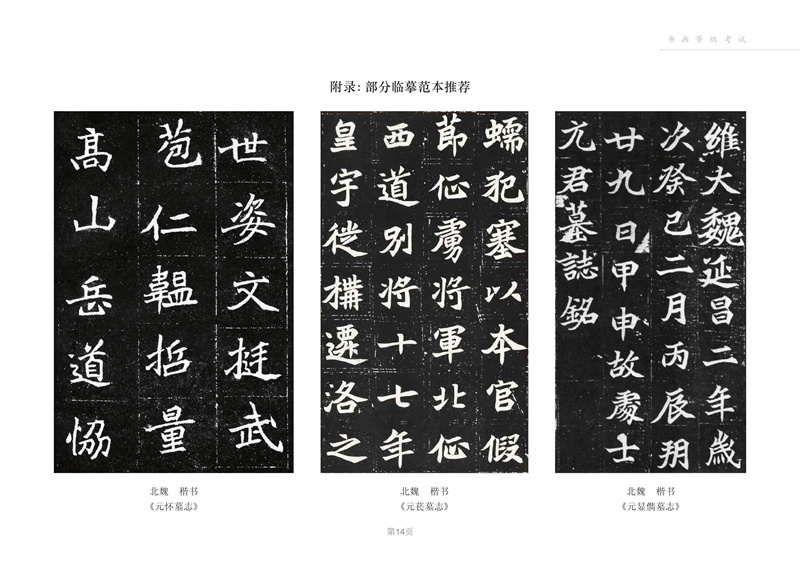 书画等级考试
附录：部分临摹范本推荐
世姿文挺武
苞仁韫哲量
高山岳道协
蠕犯塞以本官假
节征虏将军北征
西道别将十七年
皇宇徙构迁洛之
維大魏延昌二年歲
次癸巳二月丙辰朔
廿九日甲申故處士
元君墓誌銘
北魏　楷书
《元怀墓志》
北魏　楷书
《元苌墓志》
北魏　楷书
《元显儁墓志》
第14页